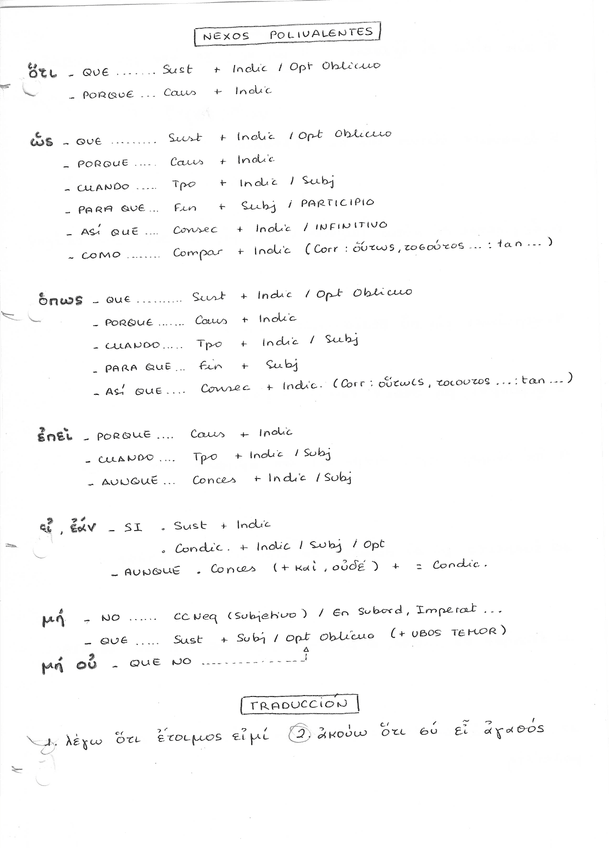 NEXOS POLIVALENTES
ὅτι - QUE ....... Sust + Indic / Opt Oblicuo
- PORQUE ... Caus + Indic
ὡς - QUE ......... Sust + Indic / Opt Oblicuo
- PORQUE ..... Caus + Indic
- CUANDO ..... Tpo + Indic / Subj
- PARA QUE ... Fin + Subj / PARTICIPIO
- ASÍ QUE ..... Consec + Indic / INFINITIVO
- COMO ....... Compar + Indic (Corr: οὕτως, τοσοῦτος ... : tan ... )
ὅπως - QUE .......... Sust + Indic / Opt Oblicuo
- PORQUE ....... Caus + Indic
- CUANDO ..... Tpo + Indic / Subj
- PARA QUE ... Fin + Subj
- ASÍ QUE .... Consec + Indic. (Corr: οὕτως, τοιουτος ... : tan ... )
ἐπεὶ - PORQUE .... Caus + Indic
- CUANDO .... Tpo + Indic / Subj
- AUNQUE ... Conces + Indic / Subj
εἰ, ἐάν - SI . Sust + Indic
. Condic. + Indic / Subj / Opt
- AUNQUE . Conces (+ καὶ, οὐδέ) + = Condic.
μή - NO ...... CC Neg (Subjetivo) / En Subord, Imperat ...
- QUE ..... Sust + Subj / Opt Oblicuo (+ VBOS TEMOR)
μή οὐ - QUE NO ................
TRADUCCIÓN
1. λέγω ὅτι ἕτοιμος εἰμί 2. ἀκούω ὅτι σύ εἶ ἀγαθός